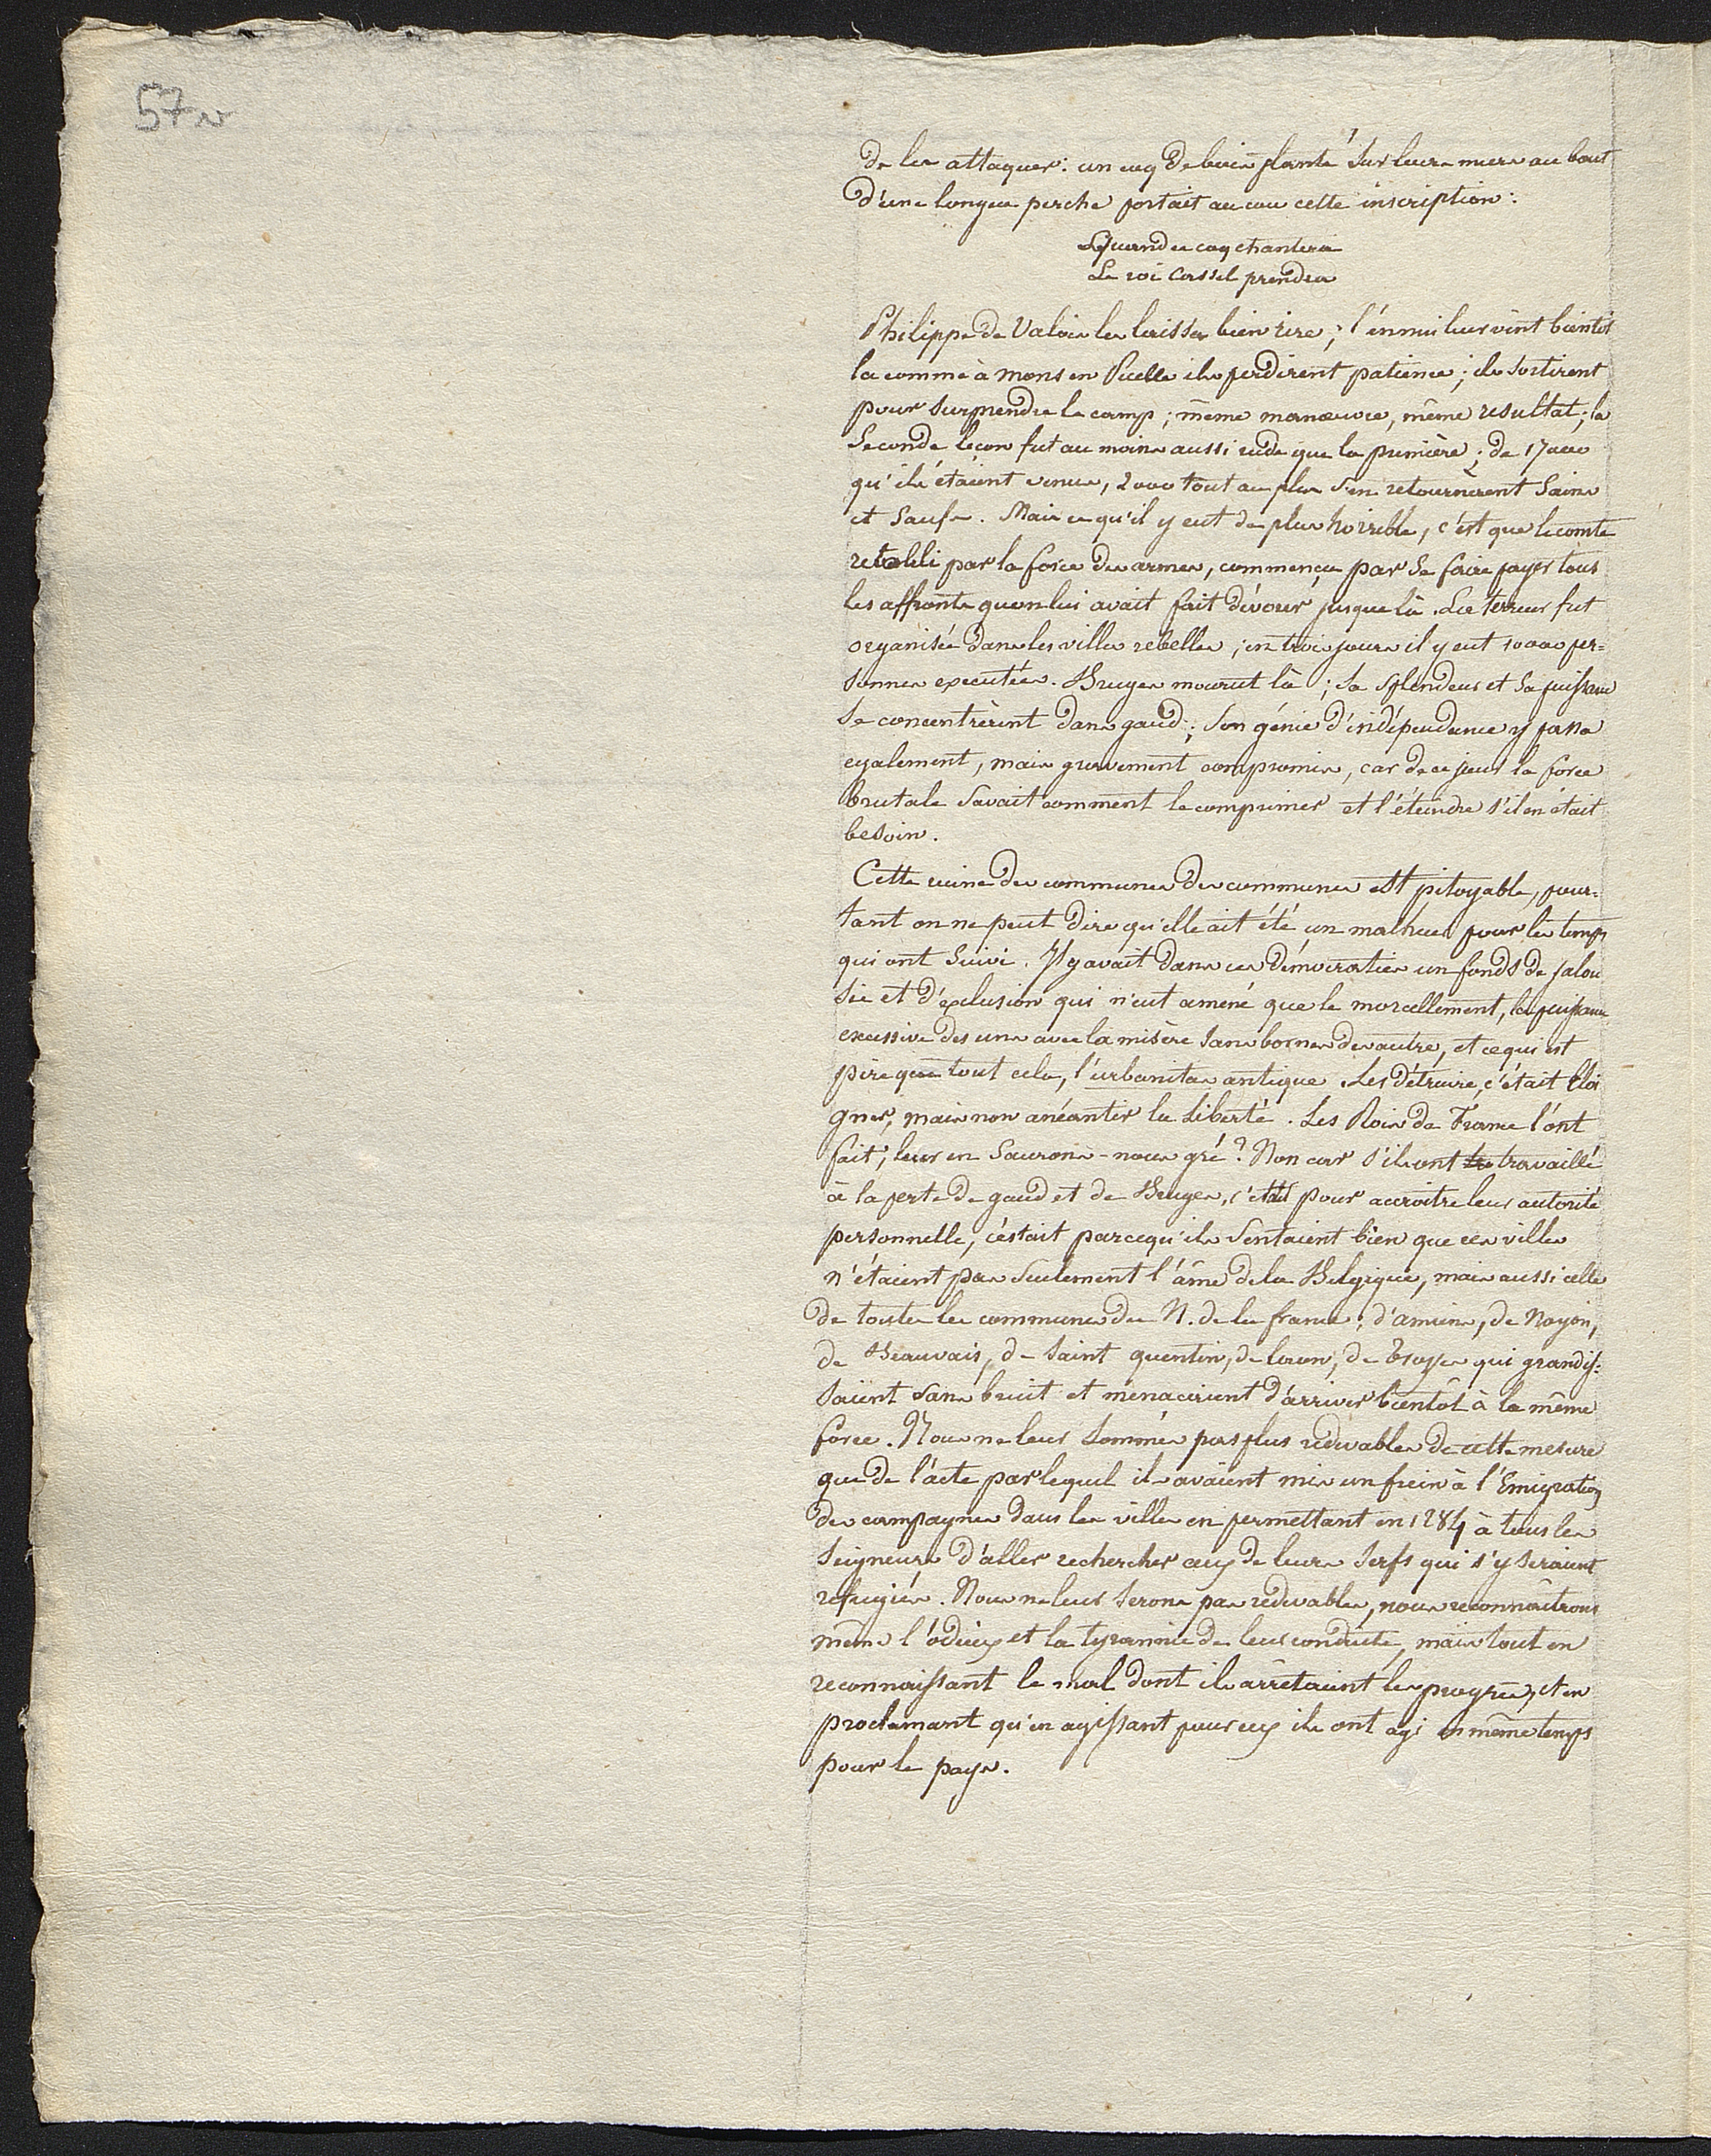 57 v
de les attaquer : un coq de bois planté sur leurs murs au bout
d'une longue perche portait au cou cette inscription :
Quand ce coq chantera
Le roi Cassel prendra
Philippe de Valois les laissa bien rire ; l'ennui leur vint bientôt
la comme à Mons en Puelle ils perdirent patience ; ils sortirent
pour surprendre le camp ; même manœuvre, même resultat ; la
seconde leçon fut au moins aussi rude que la première ; de 17000
qu'ils étaient venus, 2000 tout au plus s'en retournèrent sains
et saufs. Mais ce qu'il y eut de plus horrible, c'est que le comte
retabli par la force des armes, commença par se faire payer tous
les affronts quon lui avait fait dévorer jusque là. La terreur fut
organisée dans les villes rebelles ; en trois jours il y eut 10000 per=
sonnes executées. Bruges mourut là ; sa splendeur et sa puissance
se concentrèrent dans gand ; son génie d'indépendance y passa
egalement, mais gravement compromis, car de ce jour la force
brutale savait comment le comprimer et l'éteindre s'il en était
besoin.
Cette ruine des communes des communes est pitoyable, pour=
tant on ne peut dire qu'elle ait été un malheur pour les temps
qui ont suivi. Il y avait dans ces démocraties un fonds de jalou
sie et d'exclusion qui n'eut amené que le morcellement, la puissance
excessive des uns avec la misère sans bornes des autre, et ce qui est
pire que tout cela, l'urbanitas antique. Les détruire, c'était éloi
gner, mais non anéantir la liberté. Les Rois de France l'ont
fait ; leur en saurons-nous gré ? Non car s'ils ont tra travaillé
à la perte de gand et de Bruges, c'était pour accroitre leur autorité
personnelle, c'estait parcequ'ils sentaient bien que ces villes
n'étaient pas seulement l'âme de la Belgique, mais aussi celle
de toutes les communes du N. de la france ; d'amiens, de Noyon,
de Beauvais, de Saint quentin, de laon, de Troyes qui grandis=
saient sans bruit et menacaient d'arriver bientôt à la même
force. Nous ne leur sommes pas plus redevables de cette mesure
que de l'acte par lequel ils avaient mis un frein à l'Emigration
des campagnes dans les villes en permettant en 1284 à tous les
seigneurs d'aller rechercher ceux de leurs serfs qui s'y seraient
refugiés. Nous ne leur serons pas redevables, nous reconnaîtrons
même l'odieux et la tyrannie de leur conduite, mais tout en
reconnaissant le mal dont ils arrêtaient les progrès, et en
proclamant qu'en agissant pour eux ils ont agi en même temps
pour le pays.